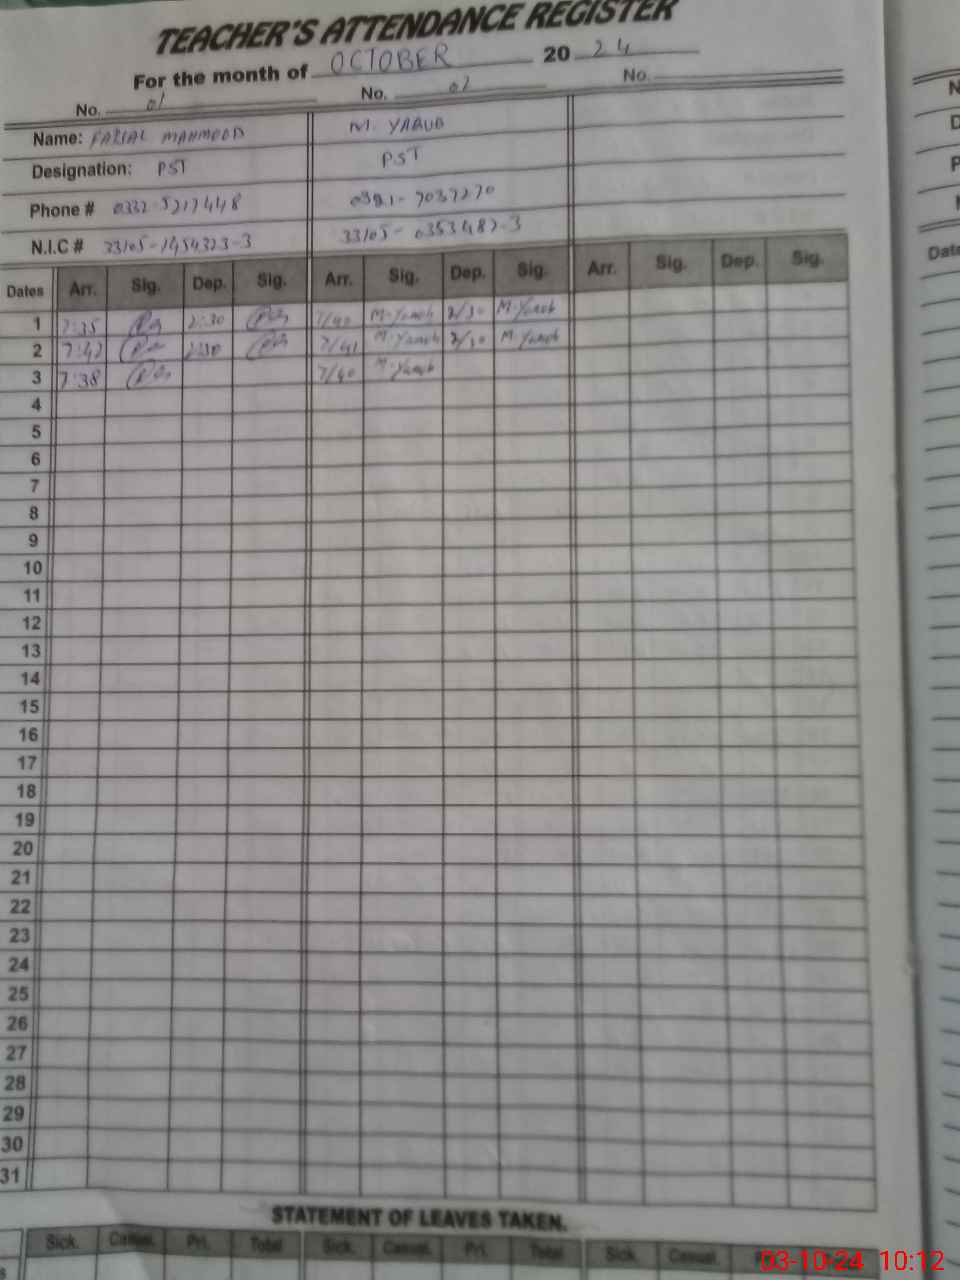 TEACHER'S ATTENDANCE REGISTER
For the month of OCTOBER 20 24
No. 01 No. 02 No.
Name: FAISAL MAHMOOD M. YAQUB
Designation: PST PST
Phone # 0332-5217448 7037270
N.I.C # 33105-1454323-3 33105-0353487-3
Dates Arr. Sig. Dep. Sig. Arr. Sig. Dep. Sig. Arr. Sig. Dep. Sig.
1 7:35 2:30 7/40 M.Yaqub 2/30 M.Yaqub
2 7:42 2:30 7/41 M.Yaqub 2/30 M.Yaqub
3 7:38 7/40 M.Yaqub
4
5
6
7
8
9
10
11
12
13
14
15
16
17
18
19
20
21
22
23
24
25
26
27
28
29
30
31
STATEMENT OF LEAVES TAKEN.
Sick. Casual. Pri. Total Sick. Casual. Pri. Total Sick. Casual.
03-10-24 10:12